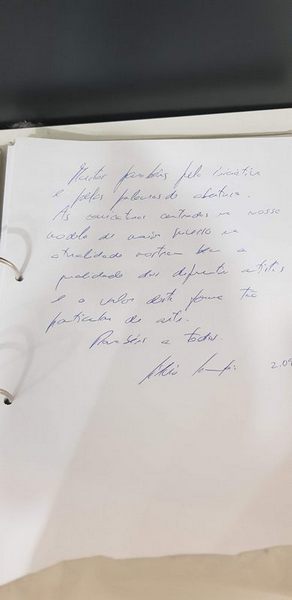 Muitos parabéns pela iniciativa
e pelas palavras de abertura.
As caricaturas centradas no nosso
modelo de maior sucesso na
atualidade mostram bem a
qualidade dos diferentes artistas
e o valor desta forma tão
particular de arte.
Parabéns a todos.